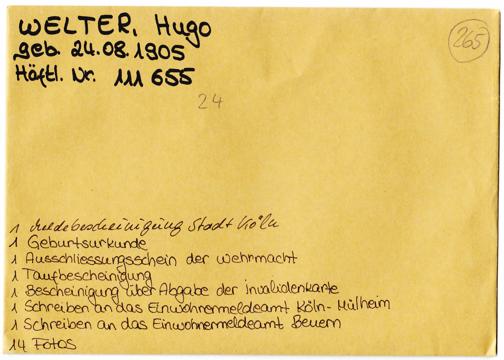 WELTER, Hugo
geb. 24.08.1905
Häftl. Nr. 111 655
265
24
1 Meldebescheinigung Stadt Köln
1 Geburtsurkunde
1 Ausschliessungsschein der Wehrmacht
1 Taufbescheinigung
1 Bescheinigung über Abgabe der Invalidenkarte
1 Schreiben an das Einwohnermeldeamt Köln-Mülheim
1 Schreiben an das Einwohnermeldeamt Beuern
14 Fotos